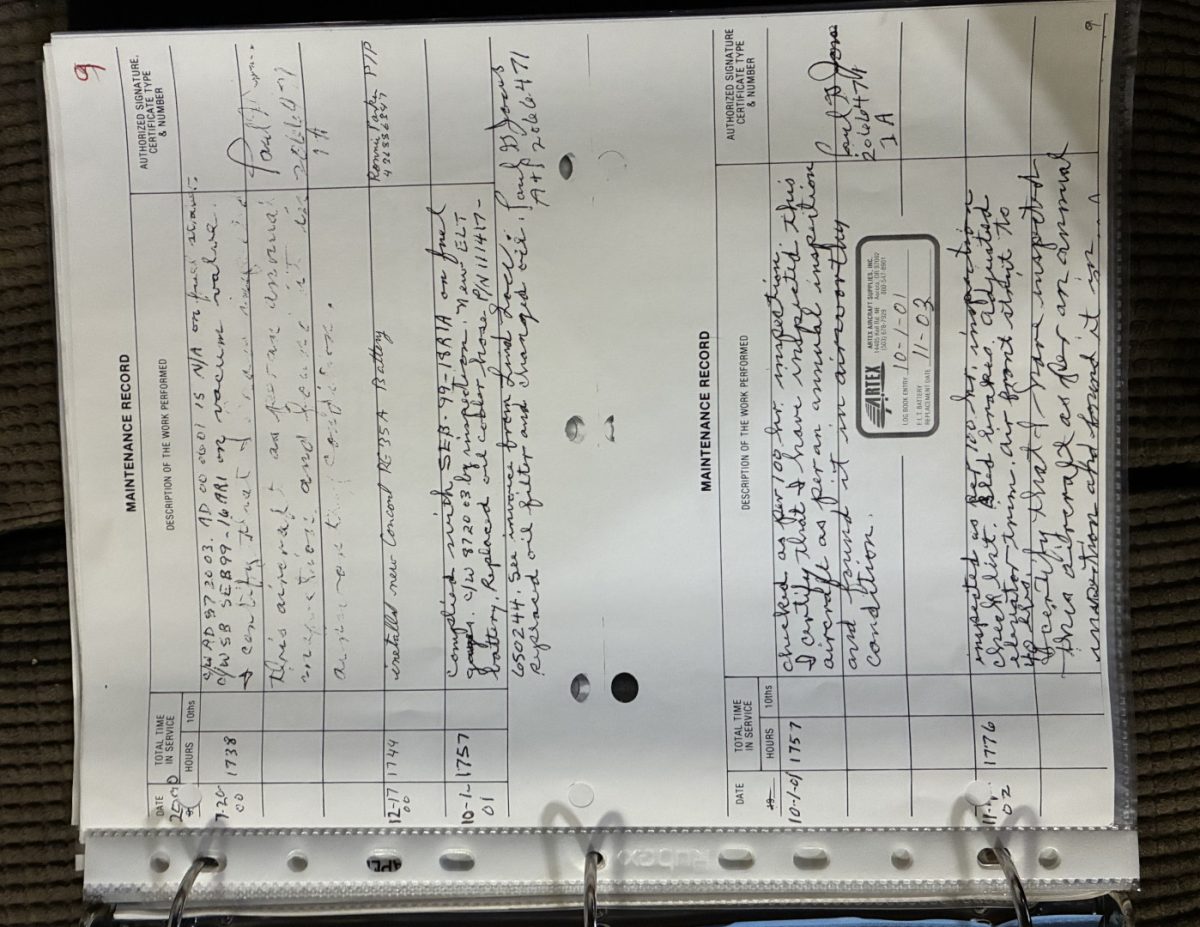 9
MAINTENANCE RECORD
DATE
TOTAL TIME
IN SERVICE
HOURS
10ths
DESCRIPTION OF THE WORK PERFORMED
AUTHORIZED SIGNATURE,
CERTIFICATE TYPE
& NUMBER
2000
c/w AD 872003. AD 00 06 01 is N/A on fuel
7-20-
00
1738
c/w SB SEB99-16AR1 on vacuum valve.
I certify that I
this aircraft as per an annual
inspection and found it in
airworthy condition.
2066471
IA
12-17
00
1744
installed new Concord RG35A Battery
Ronnie
P/P
10-1-
01
1757
complied with SEB. 99-18R1A on fuel
gauges. c/w 872003 by inspection. new ELT
battery. Replaced oil cooler hose P/N 111417-
6S0244. See invoice from
Replaced oil filter and changed oil.
Paul D Jones
A+P 2066471
MAINTENANCE RECORD
DATE
TOTAL TIME
IN SERVICE
HOURS
10ths
DESCRIPTION OF THE WORK PERFORMED
AUTHORIZED SIGNATURE,
CERTIFICATE TYPE
& NUMBER
19
10-1-01
1757
checked as per 100 hr. inspection.
I certify that I have inspected this
aircraft as per an annual inspection
and found it in airworthy
condition.
Paul D Jones
2066471
IA
ARTEX
ARTEX AIRCRAFT SUPPLIES, INC.
14405 Keil Rd. NE Aurora, OR 97002
(503) 678-7929 800-547-8901
LOG BOOK ENTRY 10-1-01
E.L.T. BATTERY
REPLACEMENT DATE 11-03
02
1776
inspected as per 100 hr. inspection
check list. Bled brakes. adjusted
elevator trim. air front strut to
40 lbs.
I certify that I have inspected
this aircraft as per an annual
inspection and found it in
9
Rubex